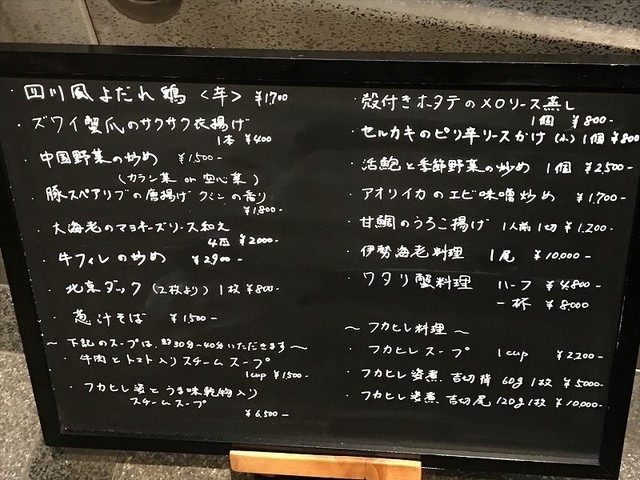 ・四川風よだれ鶏〈辛〉 ¥1,700
・ズワイ蟹爪のサクサク衣揚げ
1本 ¥400
・中国野菜の炒め ¥1,500-
(カラシ菜 or 空心菜)
・豚スペアリブの唐揚げ クミンの香り
¥1,800-
・大海老のマヨネーズソース和え
4匹 ¥2000-
・牛フィレの炒め ¥2900-
・北京ダック (2枚より) 1枚¥800-
・葱汁そば ¥1,500-
〜下記のスープは、約30分〜40分いただきます〜
・牛肉とトマト入りスチームスープ
1cup ¥1,500-
・フカヒレ姿とうま味乾物入り
スチームスープ
¥6,500-
・殻付きホタテのXOソース蒸し
1個 ¥800-
・セルカキのピリ辛ソースかけ (小) 1個 ¥800
・活鮑と季節野菜の炒め 1個 ¥2,500-
・アオリイカのエビ味噌炒め ¥1,700-
・甘鯛のうろこ揚げ 1人前1切 ¥1,200-
・伊勢海老料理 1尾 ¥10,000-
・ワタリ蟹料理 ハーフ ¥4,800
一杯 ¥8,000
〜フカヒレ料理〜
・フカヒレスープ 1cup ¥2,200-
・フカヒレ姿煮 吉切 60g 1枚 ¥5000-
・フカヒレ姿煮 吉切尾 120g 1枚 ¥10,000-